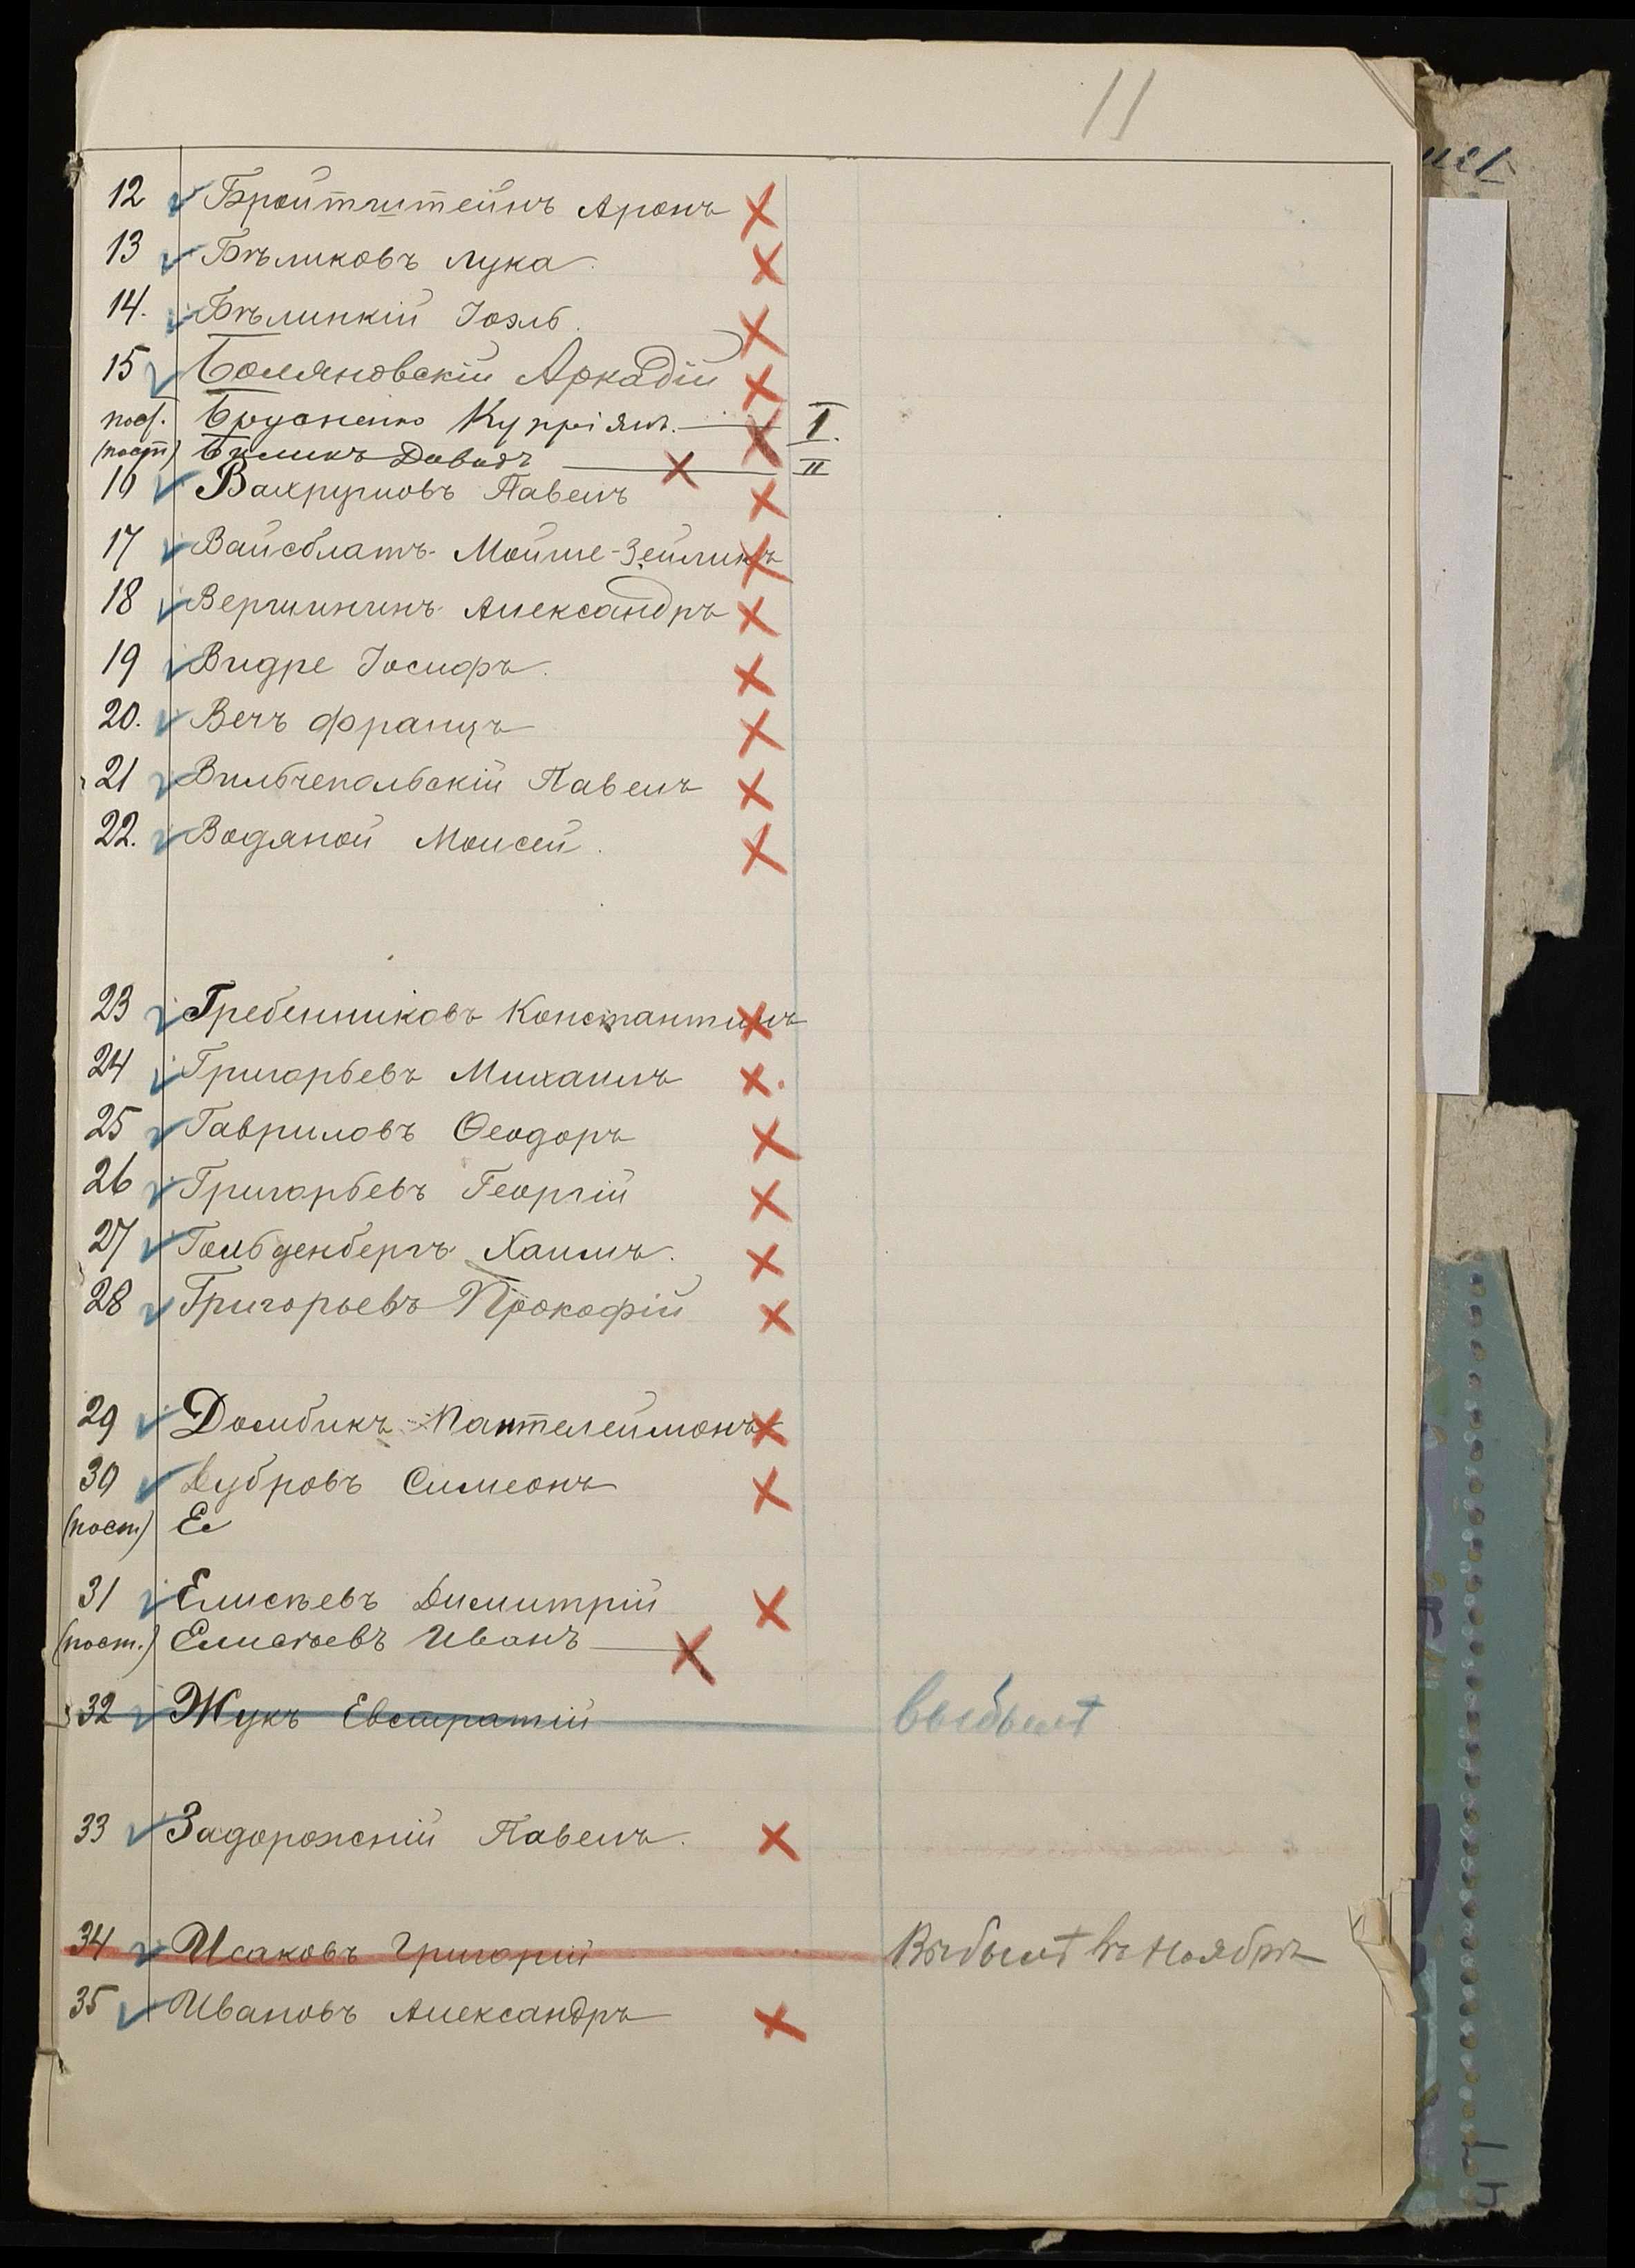 11
12 Бройтштейнъ Аронъ
13 Бѣликовъ Лука
14. Бѣлинкій Іоэль.
15 Боляновскій Аркадій
Кипріянъ. I.
(пост) Биликъ Давидъ II
16 Вахрушовъ Павелъ
17 Вайсблатъ Мойше-Зейликъ
18 Вершининъ Александръ
19 Видре Іосифъ.
20. Вечъ Францъ
21 Вильчепольскій Павелъ
22. Водяной Моисей.
23 Гребенниковъ Константинъ
24 Григорьевъ Михаилъ
25 Гавриловъ Ѳеодоръ
26 Григорьевъ Георгій
27 Гольденбергъ Хаимъ.
28 Григорьевъ Прокофій
29 Домбикъ Пантелеймонъ
30 Дубровъ Симеонъ
(пост) Е
31 Елисѣевъ Димитрій
(пост.) Елисѣевъ Иванъ
32 Жукъ Евстратій выбылъ
33 Задорожній Павелъ.
34 Исаковъ Григорій Выбылъ въ Ноябрѣ
35 Ивановъ Александръ